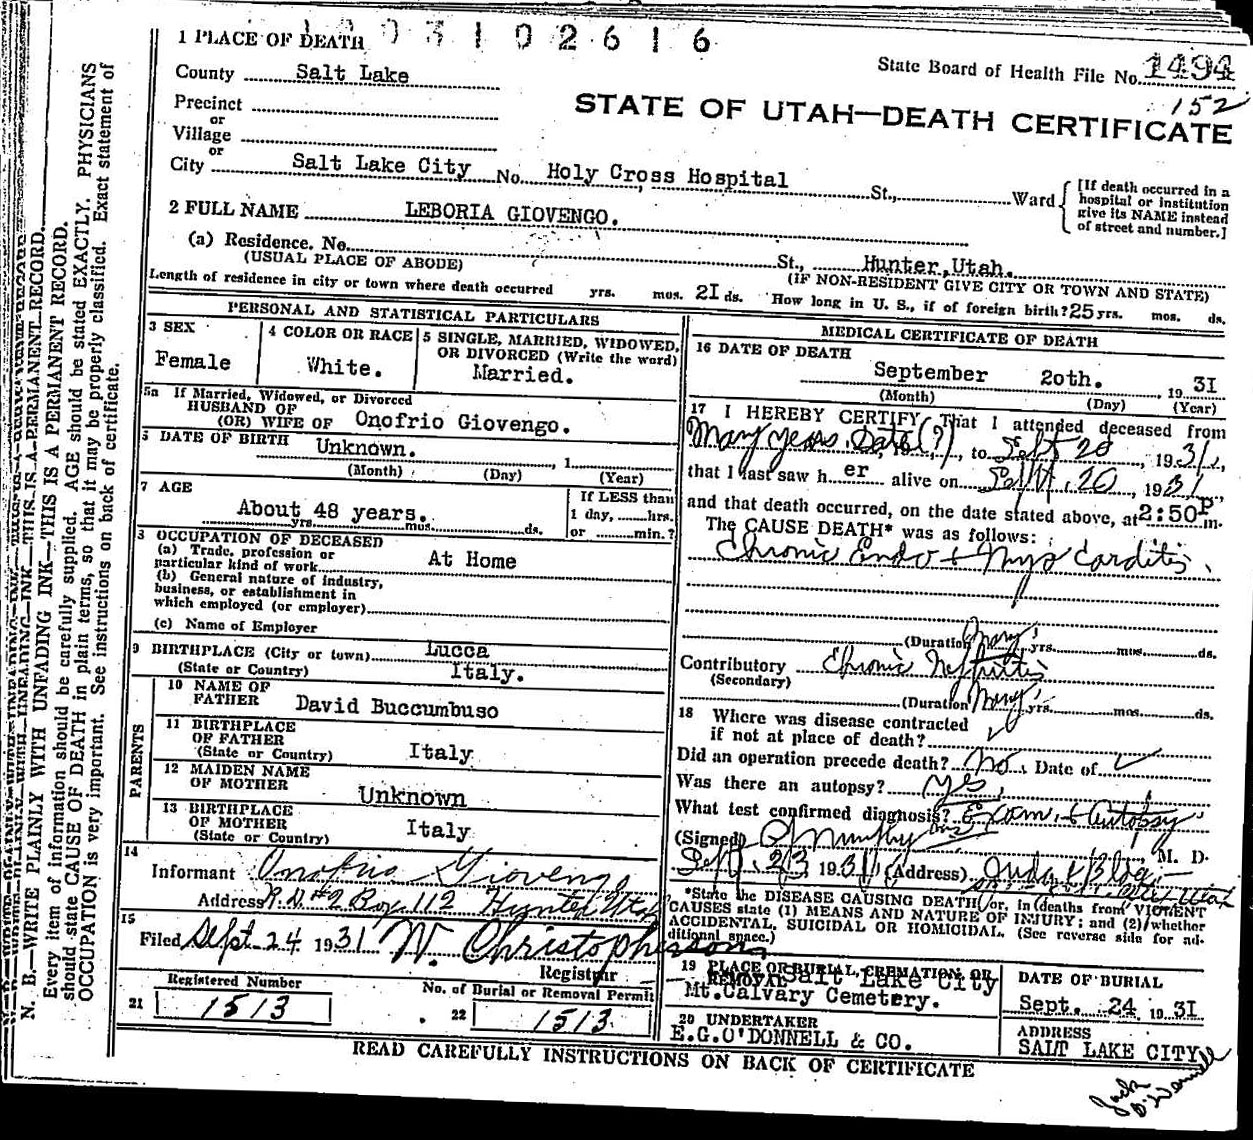 1 0 0 3 1 0 2 6 1 6
1 PLACE OF DEATH
State Board of Health File No. 1494
152
County Salt Lake
STATE OF UTAH—DEATH CERTIFICATE
Precinct
or
Village
or
City Salt Lake City No. Holy Cross Hospital St., Ward
[If death occurred in a hospital or institution give its NAME instead of street and number.]
2 FULL NAME LEBORIA GIOVENGO.
(a) Residence. No. St., Hunter, Utah.
(USUAL PLACE OF ABODE) (IF NON-RESIDENT GIVE CITY OR TOWN AND STATE)
Length of residence in city or town where death occurred yrs. mos. 2I ds. How long in U. S., if of foreign birth? 25 yrs. mos. ds.
PERSONAL AND STATISTICAL PARTICULARS
3 SEX
Female
4 COLOR OR RACE
White.
5 SINGLE, MARRIED, WIDOWED, OR DIVORCED (Write the word)
Married.
5a If Married, Widowed, or Divorced
HUSBAND OF
(OR) WIFE OF Onofrio Giovengo.
DATE OF BIRTH Unknown. , 1
(Month) (Day) (Year)
7 AGE
About 48 years.
yrs. mos. ds.
If LESS than
1 day, hrs.
or min.?
OCCUPATION OF DECEASED
(a) Trade, profession or
particular kind of work At Home
(b) General nature of industry,
business, or establishment in
which employed (or employer)
(c) Name of Employer
9 BIRTHPLACE (City or town) Lucca
(State or Country) Italy.
PARENTS
10 NAME OF
FATHER David Buccumbuso
11 BIRTHPLACE
OF FATHER
(State or Country) Italy
12 MAIDEN NAME
OF MOTHER Unknown
13 BIRTHPLACE
OF MOTHER
(State or Country) Italy
14
Informant Onofrio Giovengo
Address R.D. #2 Box 112 Hunter Utah
15
Filed Sept. 24 1931 W. Christophersson,
Registrar
Registered Number
21 1513
No. of Burial or Removal Permit
22 1513
MEDICAL CERTIFICATE OF DEATH
16 DATE OF DEATH
September 2oth. , 19 3I
(Month) (Day) (Year)
17 I HEREBY CERTIFY, That I attended deceased from
Many years. Date (?), to Sept 20, 1931,
that I last saw h er alive on Sept. 20, 1931,
and that death occurred, on the date stated above, at 2:50 P m.
The CAUSE DEATH* was as follows:
Chronic Endo + Myo Carditis.
(Duration Many yrs. mos. ds.
Contributory Chronic Nephritis
(Secondary)
(Duration Many yrs. mos. ds.
18 Where was disease contracted
if not at place of death?
Did an operation precede death? No. Date of
Was there an autopsy? Yes.
What test confirmed diagnosis? Exam. + Autopsy
(Signed) M. D.
Sept. 23 1931 (Address) Judge Bldg.
*State the DISEASE CAUSING DEATH, or, in (deaths from VIOLENT
CAUSES state (1) MEANS AND NATURE OF INJURY; and (2) whether
ACCIDENTAL, SUICIDAL OR HOMICIDAL. (See reverse side for ad-
ditional space.)
19 PLACE OF BURIAL, CREMATION, OR
REMOVAL Salt Lake City
Mt. Calvary Cemetery.
DATE OF BURIAL
Sept. 24 19 3I
20 UNDERTAKER
E.G.O'DONNELL & CO.
ADDRESS
SALT LAKE CITY
Jack O'Donnell
READ CAREFULLY INSTRUCTIONS ON BACK OF CERTIFICATE
N. B.—WRITE PLAINLY WITH UNFADING INK—THIS IS A PERMANENT RECORD.
Every item of information should be carefully supplied. AGE should be stated EXACTLY. PHYSICIANS
should state CAUSE OF DEATH in plain terms, so that it may be properly classified. Exact statement of
OCCUPATION is very important. See instructions on back of certificate.